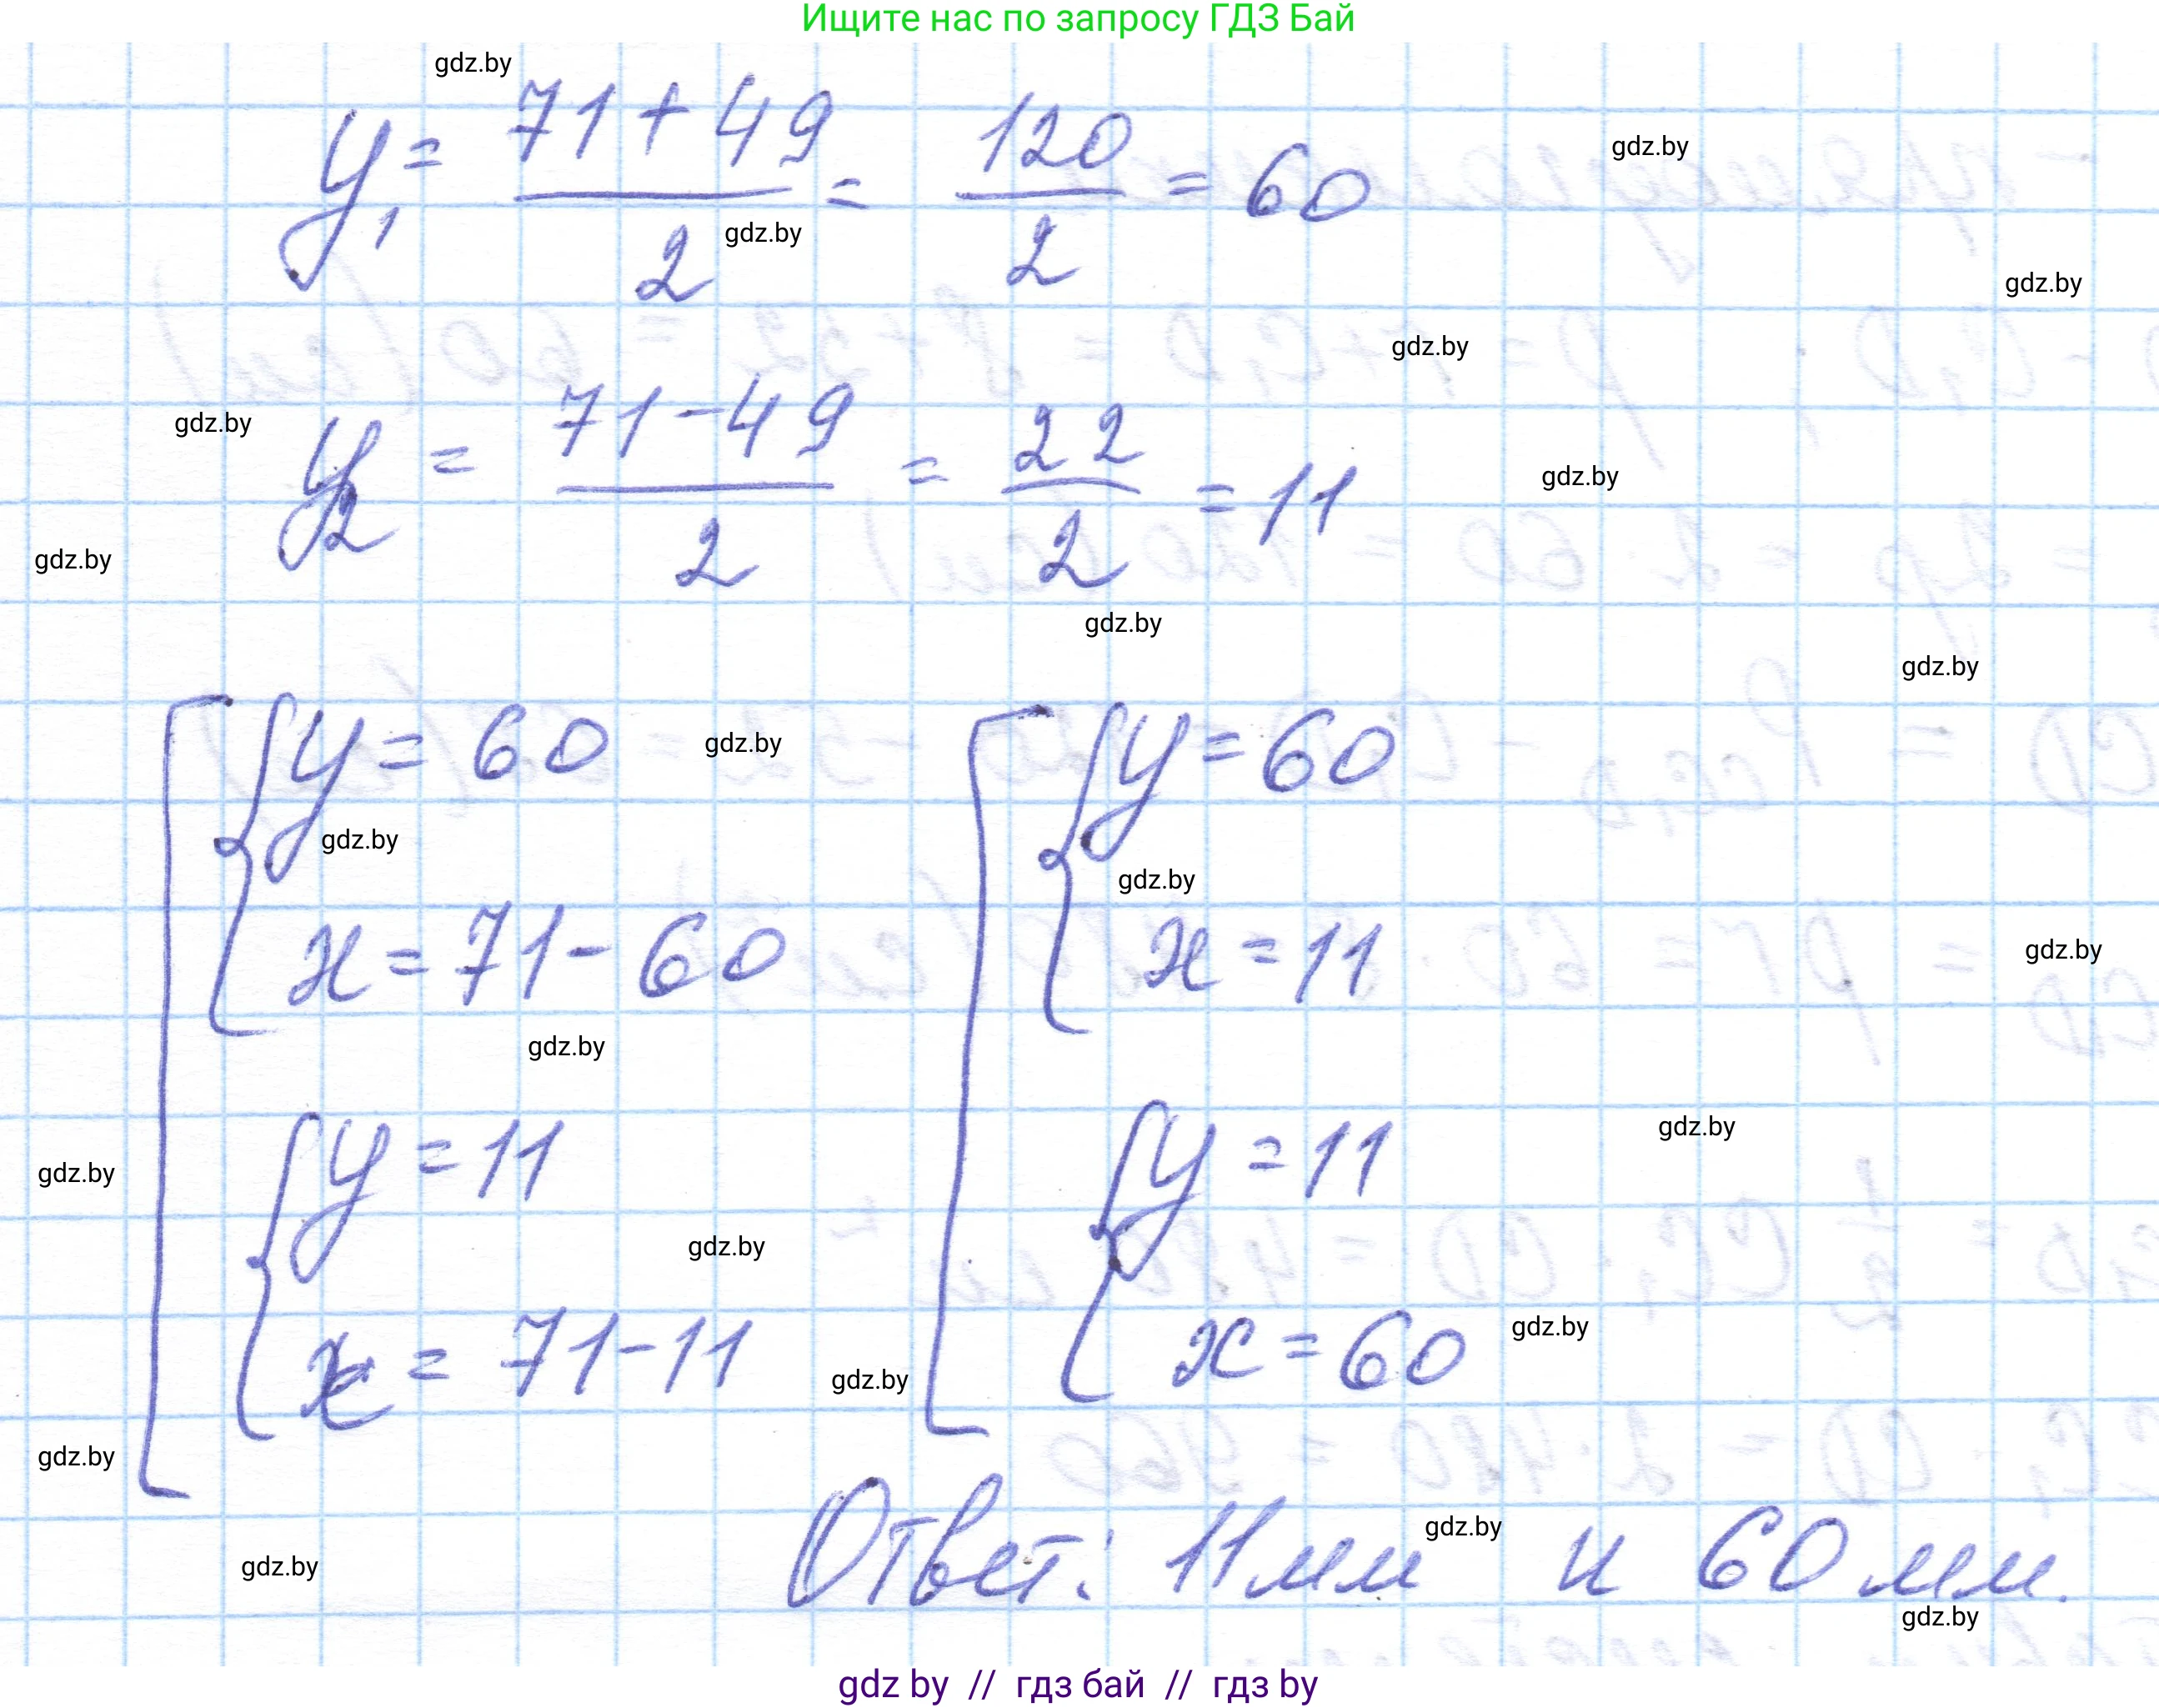 Ищите нас по запросу ГДЗ Бай
gdz.by
y₁ = (71 + 49)/2 = 120/2 = 60
gdz.by
gdz.by
gdz.by
gdz.by
y₂ = (71 - 49)/2 = 22/2 = 11
gdz.by
gdz.by
gdz.by
gdz.by
gdz.by
[ { y = 60 [ { y = 60
gdz.by
gdz.by
gdz.by
x = 71 - 60 x = 11
gdz.by
gdz.by
{ y = 11 { y = 11
gdz.by
gdz.by
gdz.by
x = 71 - 11 x = 60
gdz.by
gdz.by
gdz.by
Ответ: 11 мм и 60 мм.
gdz.by
gdz.by
gdz.by
gdz by // гдз бай // гдз by